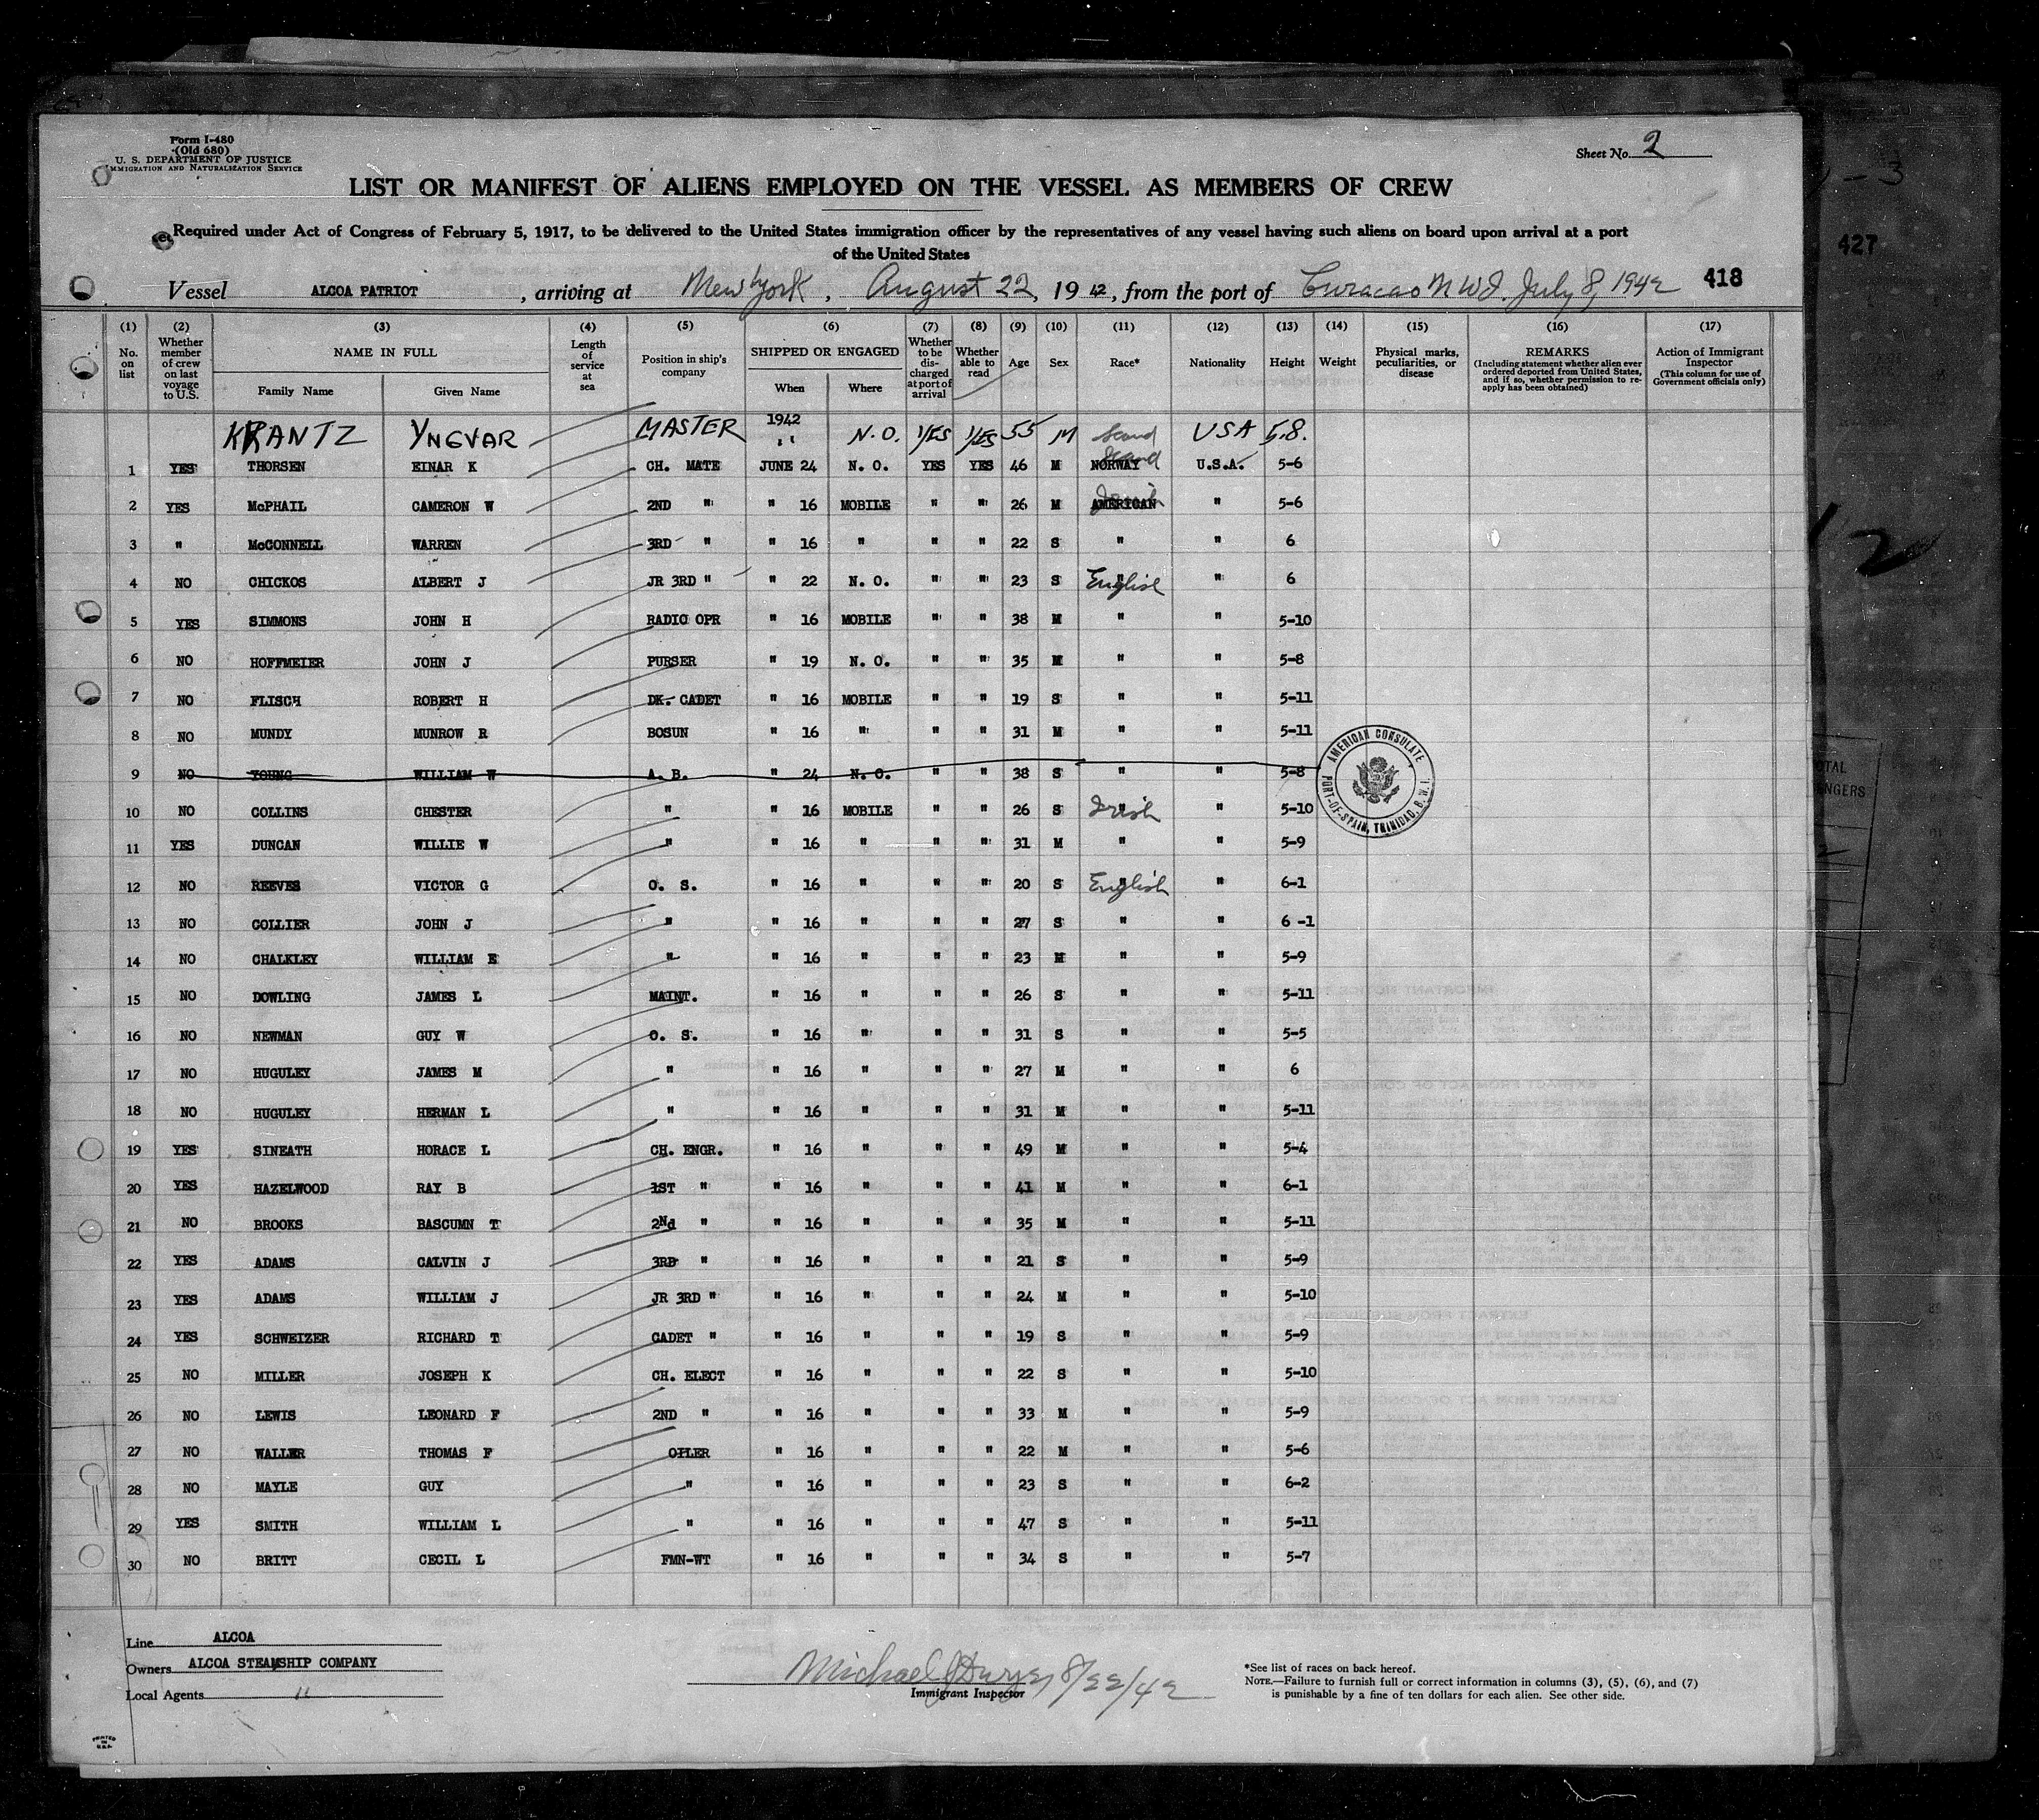 Form I-480
(Old 680)
U. S. DEPARTMENT OF JUSTICE
IMMIGRATION AND NATURALIZATION SERVICE
Sheet No. 2
LIST OR MANIFEST OF ALIENS EMPLOYED ON THE VESSEL AS MEMBERS OF CREW
Required under Act of Congress of February 5, 1917, to be delivered to the United States immigration officer by the representatives of any vessel having such aliens on board upon arrival at a port
of the United States
Vessel ALCOA PATRIOT, arriving at New York, August 22, 1942, from the port of Curacao N.W.I. July 8, 1942 418
(1) (2) (3) (4) (5) (6) (7) (8) (9) (10) (11) (12) (13) (14) (15) (16) (17)
No. on list
Whether member of crew on last voyage to U.S.
NAME IN FULL
Family Name
Given Name
Length of service at sea
Position in ship's company
SHIPPED OR ENGAGED
When
Where
Whether to be discharged at port of arrival
Whether able to read
Age
Sex
Race*
Nationality
Height
Weight
Physical marks, peculiarities, or disease
REMARKS
(Including statement whether alien ever ordered deported from United States, and if so, whether permission to reapply has been obtained)
Action of Immigrant Inspector
(This column for use of Government officials only)
KRANTZ YNGVAR MASTER 1942 " N.O. YES YES 55 M Scand USA 5.8.
1 YES THORSEN EINAR K CH. MATE JUNE 24 N. O. YES YES 46 M NORWAY Scand U.S.A. 5-6
2 YES McPHAIL CAMERON W 2ND " " 16 MOBILE " " 26 M AMERICAN Irish " 5-6
3 " McCONNELL WARREN 3RD " " 16 " " " 22 S " " 6
4 NO CHICKOS ALBERT J JR 3RD " " 22 N. O. " " 23 S English " 6
5 YES SIMMONS JOHN H RADIO OPR " 16 MOBILE " " 38 M " " 5-10
6 NO HOFFMEIER JOHN J PURSER " 19 N. O. " " 35 M " " 5-8
7 NO FLISCH ROBERT H DK. CADET " 16 MOBILE " " 19 S " " 5-11
8 NO MUNDY MUNROW R BOSUN " 16 " " " 31 M " " 5-11
9 NO YOUNG WILLIAM W A. B. " 24 N. O. " " 38 S " " 5-8
10 NO COLLINS CHESTER " " 16 MOBILE " " 26 S Irish " 5-10
11 YES DUNCAN WILLIE W " " 16 " " " 31 M " " 5-9
12 NO REEVES VICTOR G O. S. " 16 " " " 20 S English " 6-1
13 NO COLLIER JOHN J " " 16 " " " 27 S " " 6-1
14 NO CHALKLEY WILLIAM E " " 16 " " " 23 M " " 5-9
15 NO DOWLING JAMES L MAINT. " 16 " " " 26 S " " 5-11
16 NO NEWMAN GUY W O. S. " 16 " " " 31 S " " 5-5
17 NO HUGULEY JAMES M " " 16 " " " 27 M " " 6
18 NO HUGULEY HERMAN L " " 16 " " " 31 M " " 5-11
19 YES SINEATH HORACE L CH. ENGR. " 16 " " " 49 M " " 5-4
20 YES HAZELWOOD RAY B 1ST " " 16 " " " 41 M " " 6-1
21 NO BROOKS BASCUMN T 2Nd " " 16 " " " 35 M " " 5-11
22 YES ADAMS CALVIN J 3RD " " 16 " " " 21 S " " 5-9
23 YES ADAMS WILLIAM J JR 3RD " " 16 " " " 24 M " " 5-10
24 YES SCHWEIZER RICHARD T CADET " " 16 " " " 19 S " " 5-9
25 NO MILLER JOSEPH K CH. ELECT " 16 " " " 22 S " " 5-10
26 NO LEWIS LEONARD F 2ND " " 16 " " " 33 M " " 5-9
27 NO WALLER THOMAS F OILER " 16 " " " 22 M " " 5-6
28 NO MAYLE GUY " " 16 " " " 23 S " " 6-2
29 YES SMITH WILLIAM L " " 16 " " " 47 S " " 5-11
30 NO BRITT CECIL L FMN-WT " 16 " " " 34 S " " 5-7
AMERICAN CONSULATE
PORT-OF-SPAIN, TRINIDAD, B. W. I.
Line ALCOA
Owners ALCOA STEAMSHIP COMPANY
Local Agents "
Michael J Dwyer 8/22/42
Immigrant Inspector
*See list of races on back hereof.
NOTE.—Failure to furnish full or correct information in columns (3), (5), (6), and (7)
is punishable by a fine of ten dollars for each alien. See other side.
PRINTED
IN
U.S.A.
427